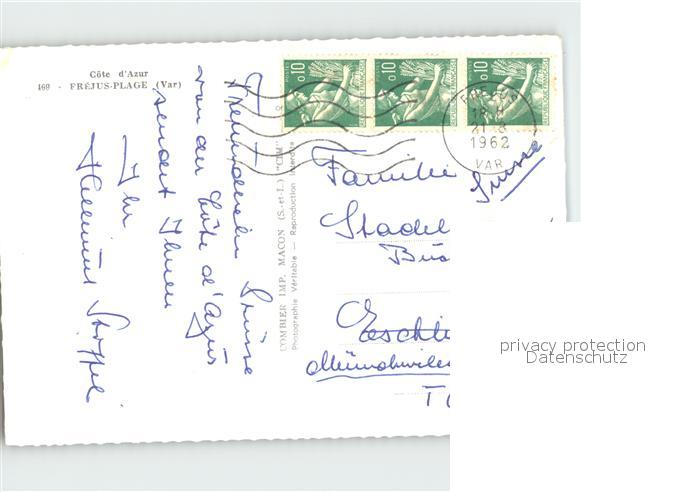 Côte d'Azur
469 - FRÉJUS-PLAGE (Var)
Freundliche Grüsse
von der Côte d'Azur
sendet Ihnen
Ihr
Helmut Stoppel
COMBIER IMP. MACON (S.-et-L.) "CIM"
Photographie Véritable — Reproduction Interdite
0,10
0,10
0,10
1962
VAR
Suisse
Familie
Stadel
Eschli
Münchwilen
T
privacy protection
Datenschutz